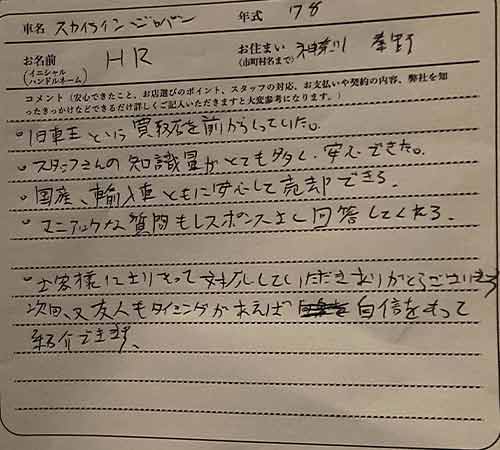 車名 スカイライン ジャパン 年式 78
お名前 (イニシャル ハンドルネーム) HR お住まい (市町村名まで) 神奈川 秦野
コメント (安心できたこと、お店選びのポイント、スタッフの対応、お支払いや契約の内容、弊社を知
ったきっかけなどできるだけ詳しくご記入いただきますと大変参考になります。)
・旧車王という買取店を前から知っていた。
・スタッフさんの知識量がとても多く、安心できた。
・国産、輸入車ともに安心して売却できる。
・マニアックな質問もレスポンスよく回答してくれる。
・お客様により そって対応していただきありがとうございます
次回、又友人もタイミングがあえば 自信をもって
紹介できます。